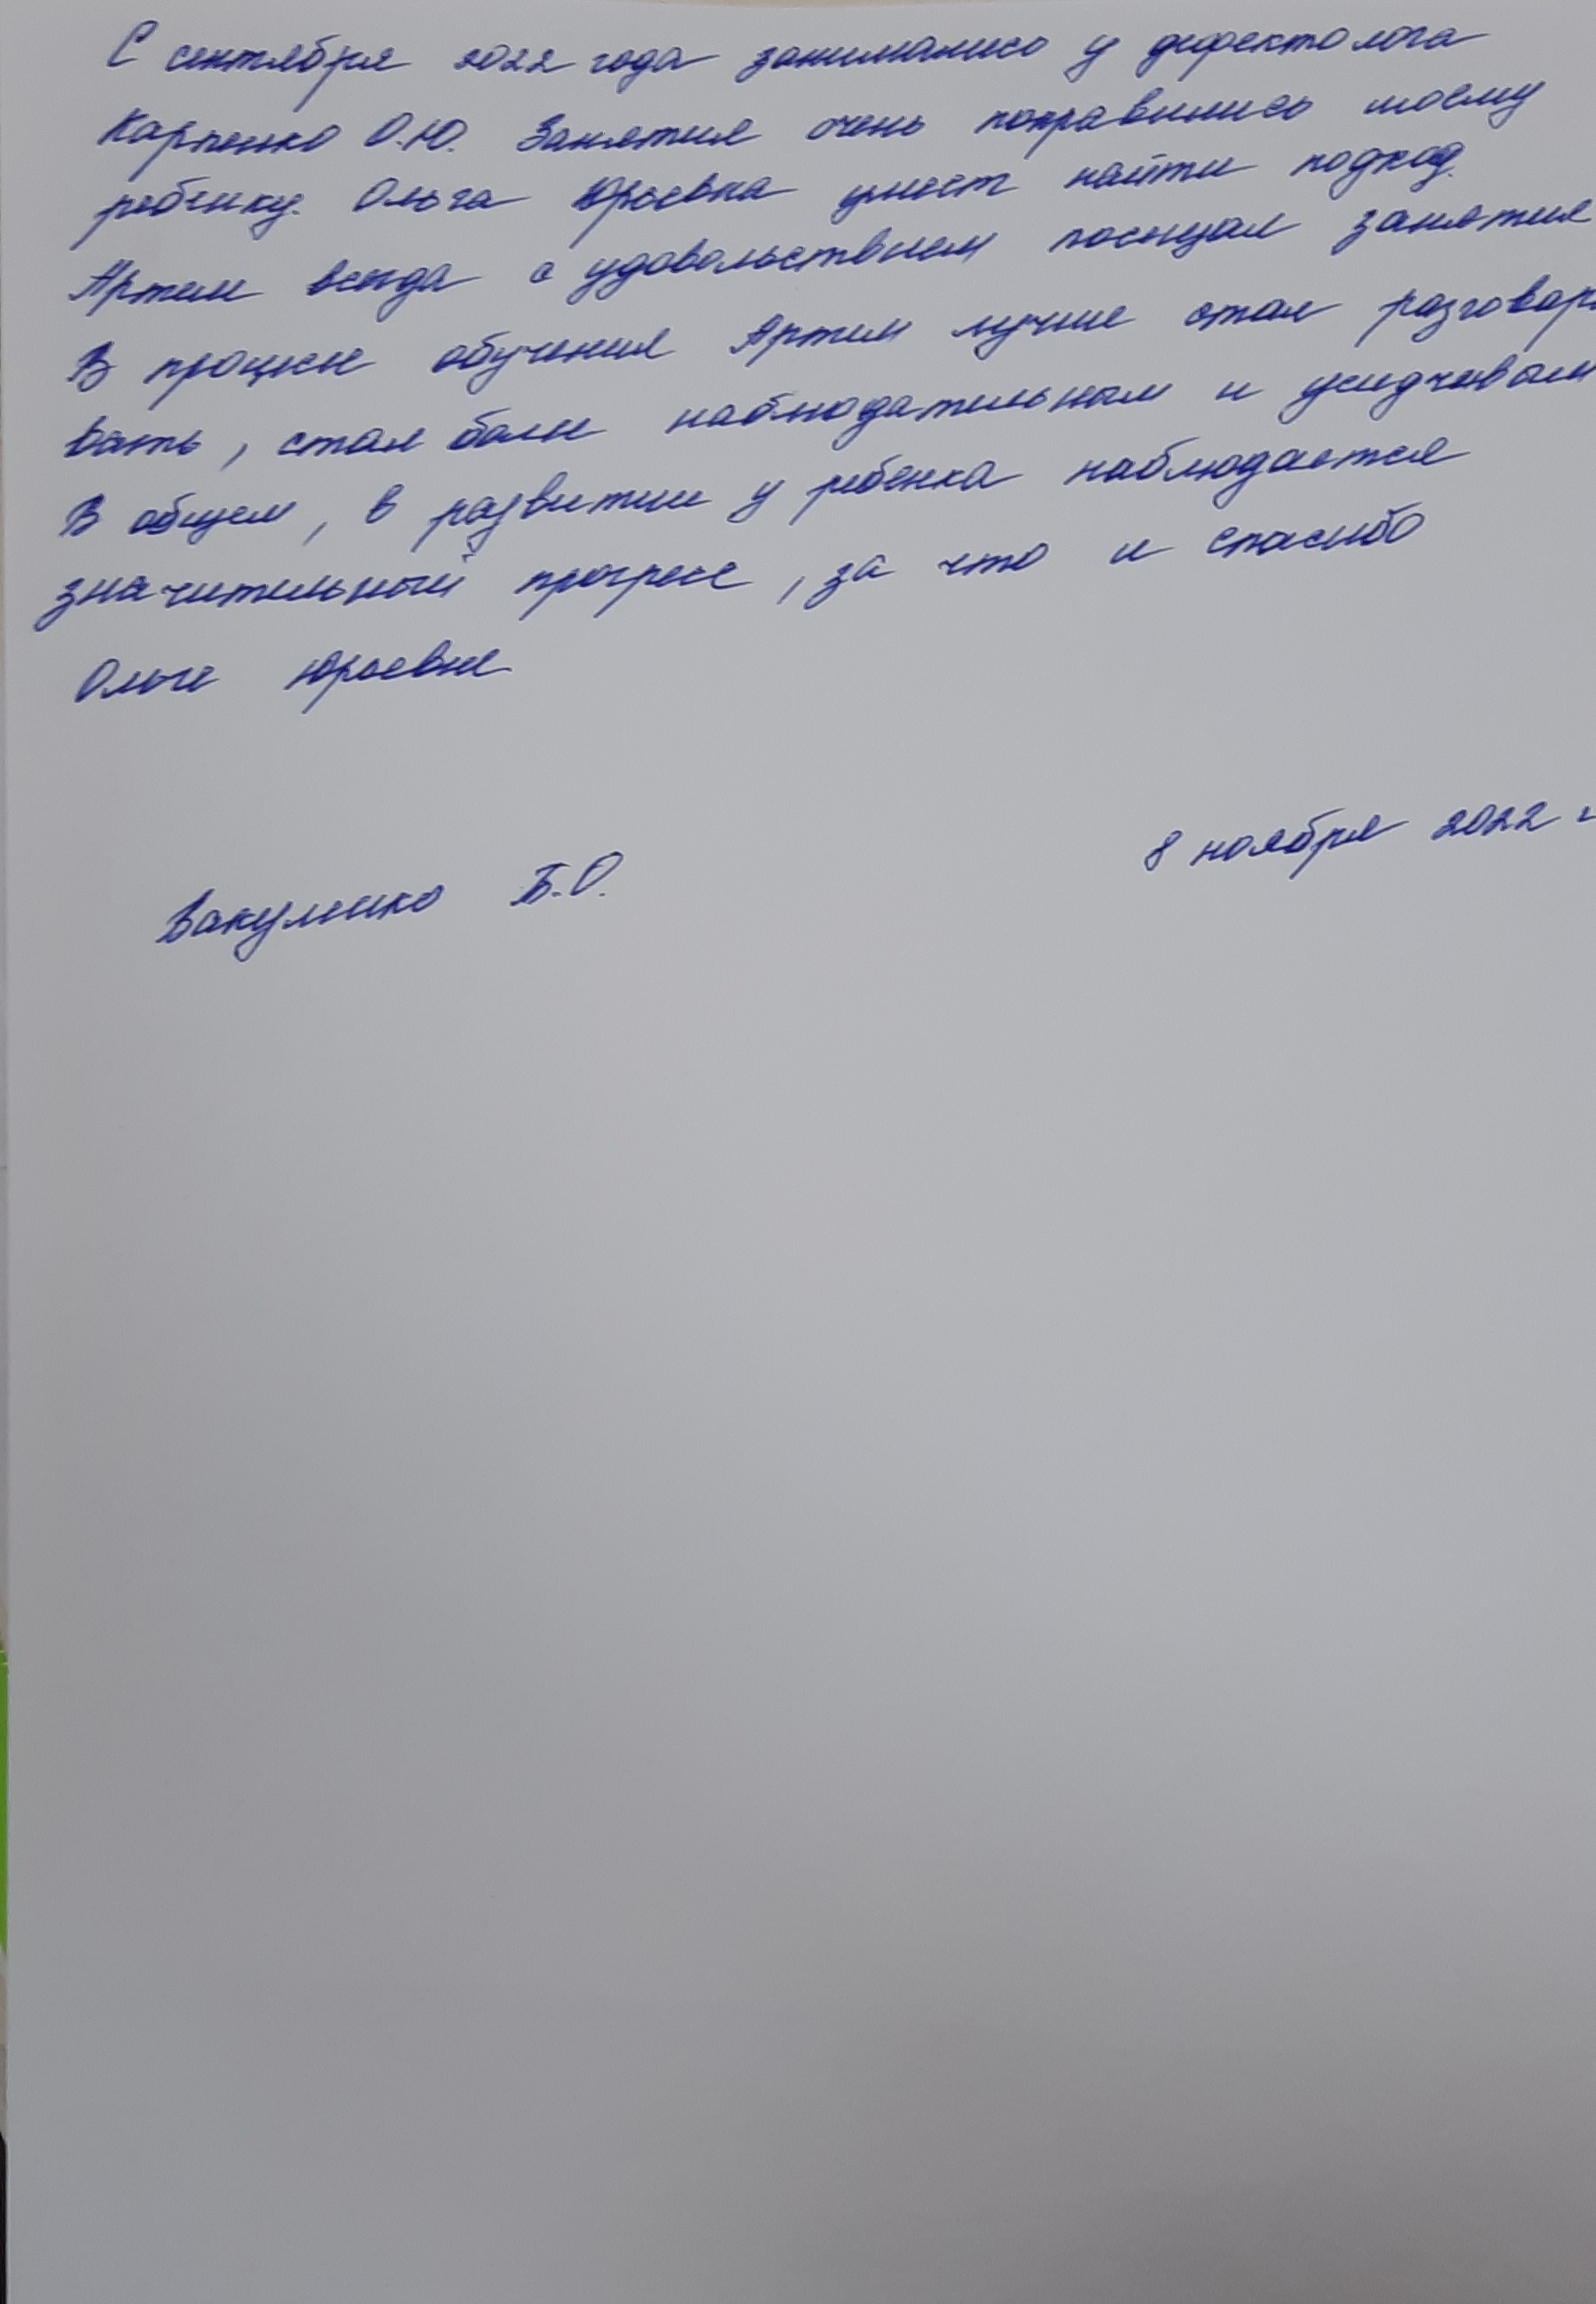 С сентября 2022 года занимались у дефектолога
Карпенко О.Ю. Занятия очень понравились моему
ребенку. Ольга Юрьевна умеет найти подход.
Артем всегда с удовольствием посещал занятия
В процессе обучения Артем лучше стал разговари
вать, стал более наблюдательным и усидчивым
В общем, в развитии у ребенка наблюдается
значительный прогресс, за что и спасибо
Ольге Юрьевне
8 ноября 2022 г
Вакуленко Б.О.